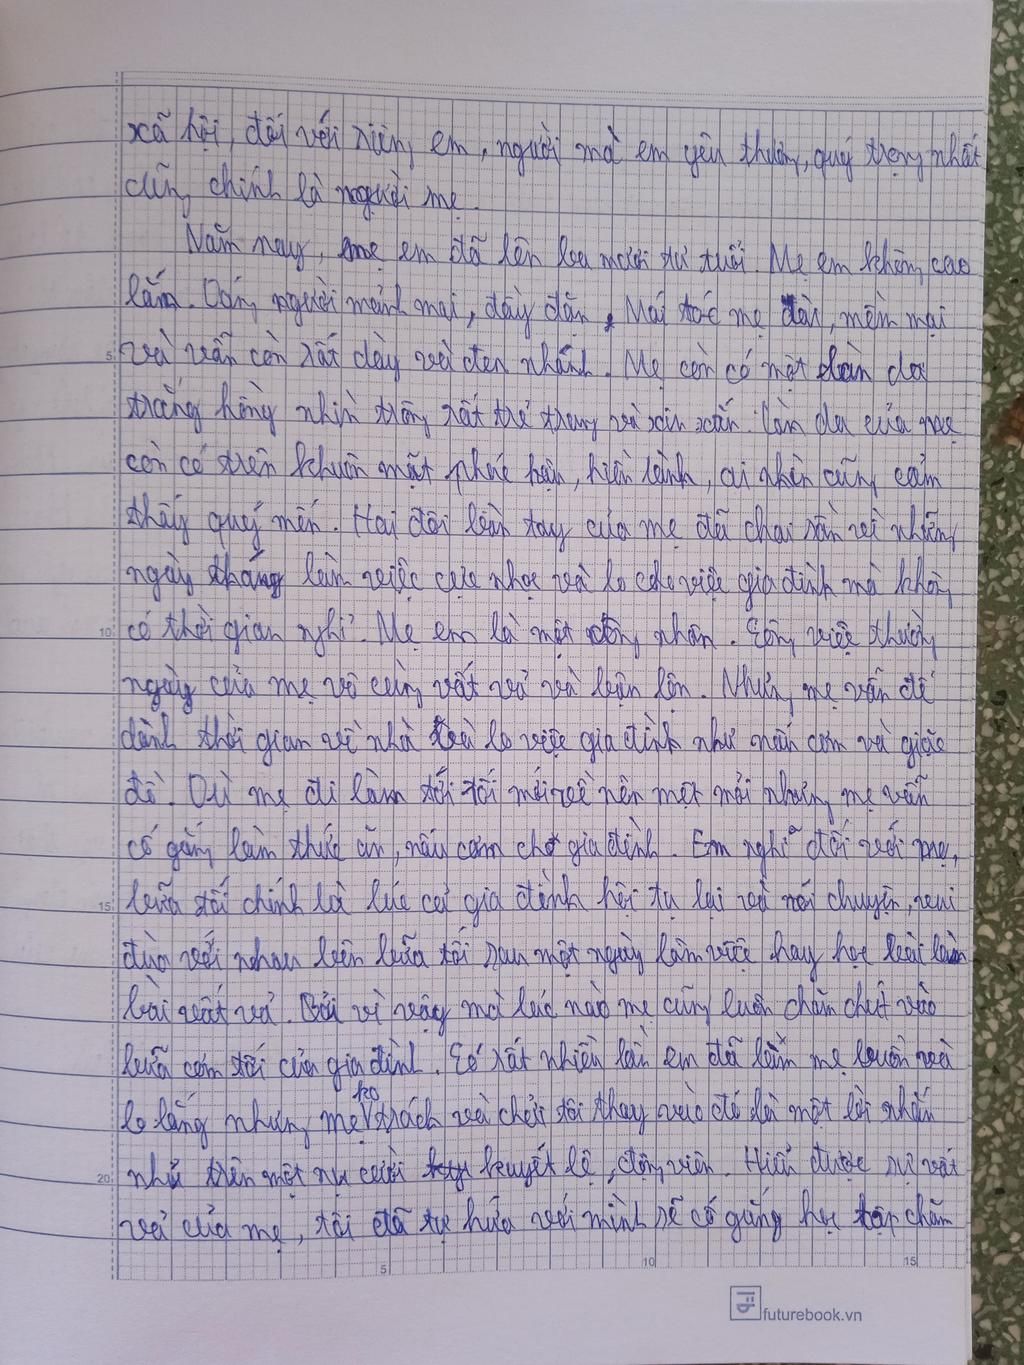 xã hội, đối với riêng em, người mà em yêu thương, quý trọng nhất
cũng chính là người mẹ.
Năm nay, mẹ em đã lên ba mươi tư tuổi. Mẹ em không cao
lắm. Dáng người mảnh mai, đầy đặn. Mái tóc mẹ dài, mềm mại
và vẫn còn rất dày và đen nhánh. Mẹ còn có một làn da
trắng hồng nhìn trông rất trẻ trung và xinh xắn. Làn da của mẹ
còn có trên khuôn mặt phúc hậu, hiền lành, ai nhìn cũng cảm
thấy quý mến. Hai đôi bàn tay của mẹ đã chai sần vì những
ngày tháng làm việc cực nhọc và lo cho việc gia đình mà không
có thời gian nghỉ. Mẹ em là một công nhân. Công việc thường
ngày của mẹ vô cùng vất vả và bận bộn. Nhưng mẹ vẫn để
dành thời gian về nhà và lo việc gia đình như nấu cơm và giặc
đồ. Dù mẹ đi làm tới tối mới về nên mệt mỏi nhưng mẹ vẫn
cố gắng làm thức ăn, nấu cơm cho gia đình. Em nghĩ đối với mẹ,
bữa tối chính là lúc cả gia đình hội tụ lại và nói chuyện, vui
đùa với nhau bên bữa tối sau một ngày làm việc hay học bài làm
bài vất vả. Bởi vì vậy mà lúc nào mẹ cũng luôn chăm chút vào
bữa cơm tối của gia đình. Có rất nhiều lần em đã làm mẹ buồn và
lo lắng nhưng mẹ ko trách và chửi tôi thay vào đó là một lời nhắn
nhủ trên một nụ cười khuyết lệ, động viên. Hiểu được sự vất
vả của mẹ, tôi đã tự hứa với mình sẽ cố gắng học tập chăm
5
10
15
20
5
10
15
futurebook.vn